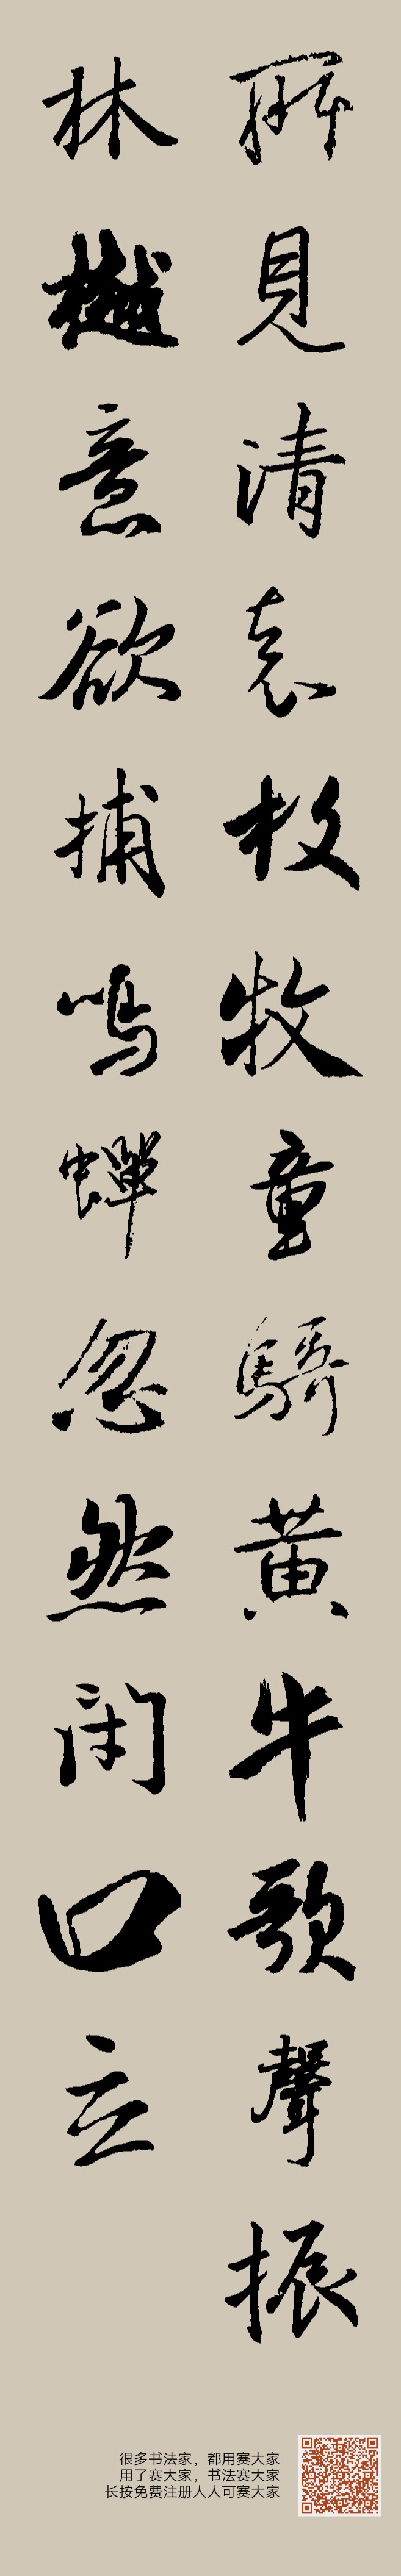 所見清袁枚牧童騎黄牛歌聲振
林樾意欲捕鳴蟬忽然閉口立
很多书法家，都用赛大家
用了赛大家，书法赛大家
长按免费注册人人可赛大家